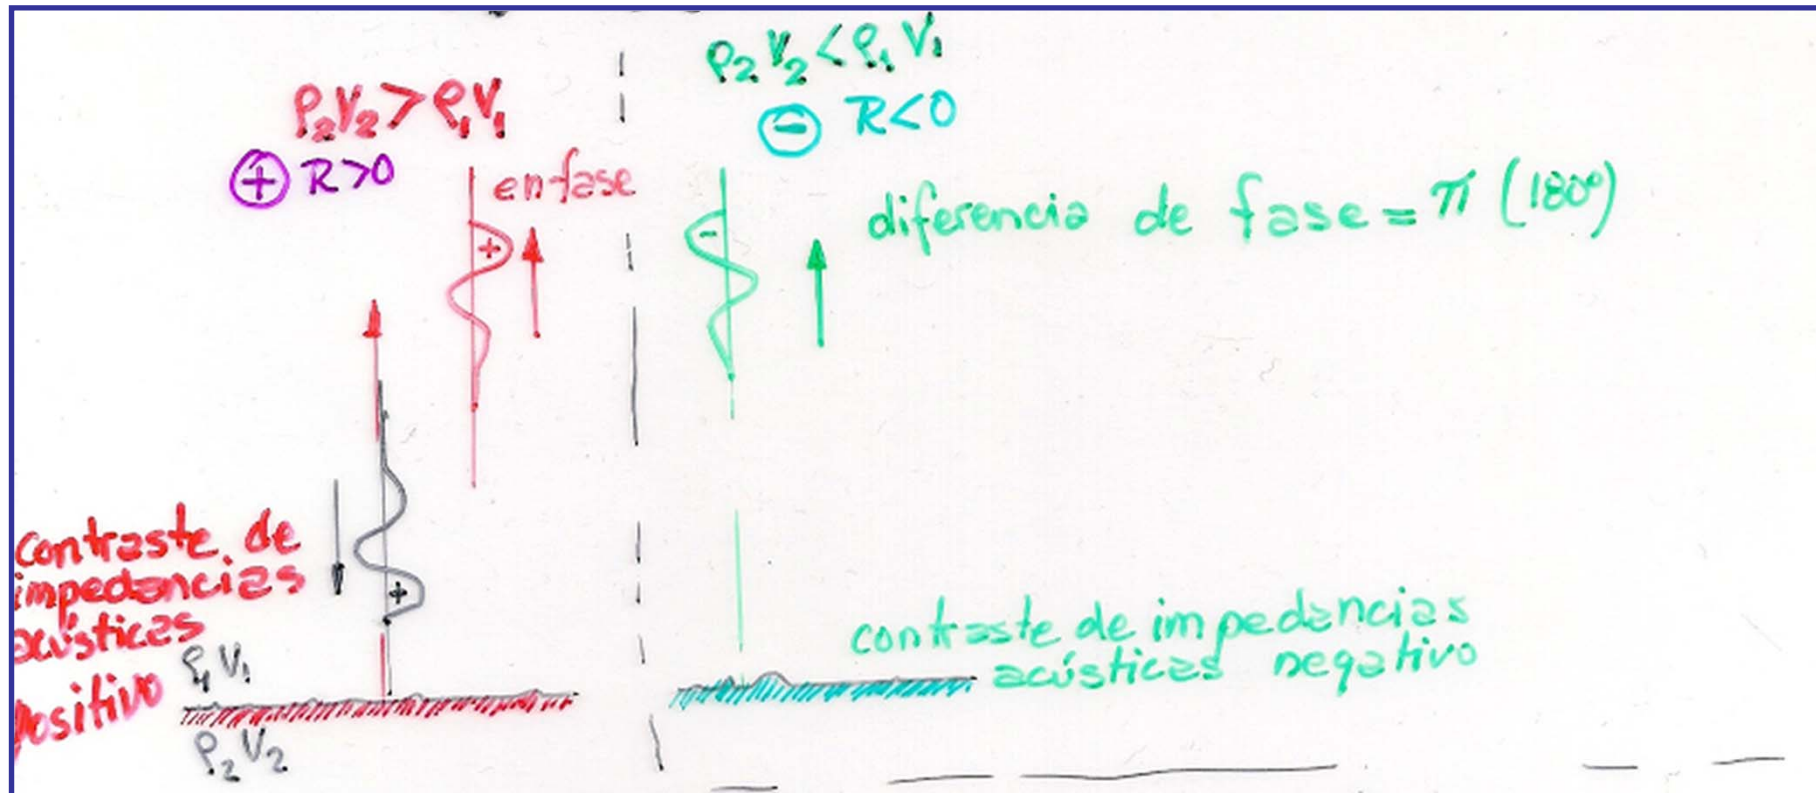 ρ₂V₂ > ρ₁V₁
⊕ R>0
en fase
+
+
contraste de
impedancias
acústicas
positivo
ρ₁V₁
ρ₂V₂
ρ₂V₂ < ρ₁V₁
⊖ R<0
-
diferencia de fase = π (180º)
contraste de impedancias
acústicas negativo